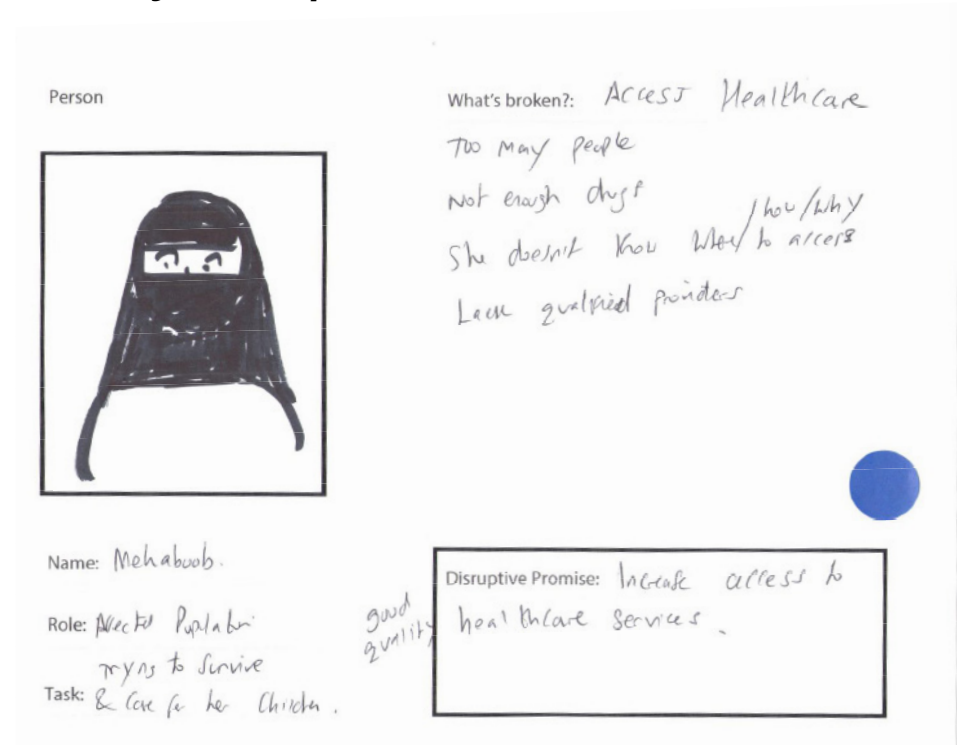 Person
What's broken?: Access Healthcare
Too many people
Not enough drugs
She doesn't know when/how/why to access
Lack qualified providers
Name: Mehaboob.
Role: Affected Population
trying to survive
Task: & Care for her Children.
Disruptive Promise: Increase access to
good quality healthcare services.